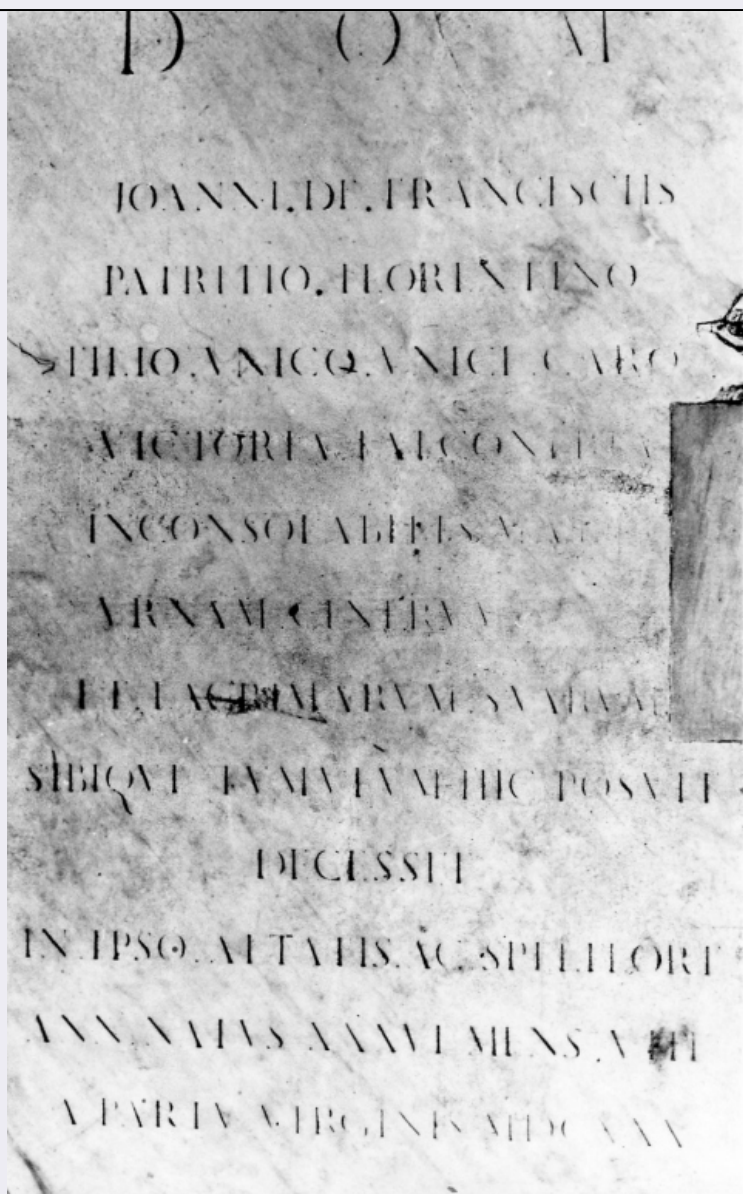 D O M
IOANNI.DE.FRANCISCIIS
PATRITIO.FLORENTINO
FILIO.VNICO.VNICE.CARO
VICTORIA.FALCONERIA
INCONSOLABILIS.MATER
VRNAM.CINERVM
ET.LACRIMARVM.SVARVM
SIBIQVE TVMVLVM.HIC POSVIT
DECESSIT
IN.IPSO.AETATIS.AC.SPEI.FLORE
ANN.NATVS XXXVI.MENS.VIII
A PARTV VIRGINIS